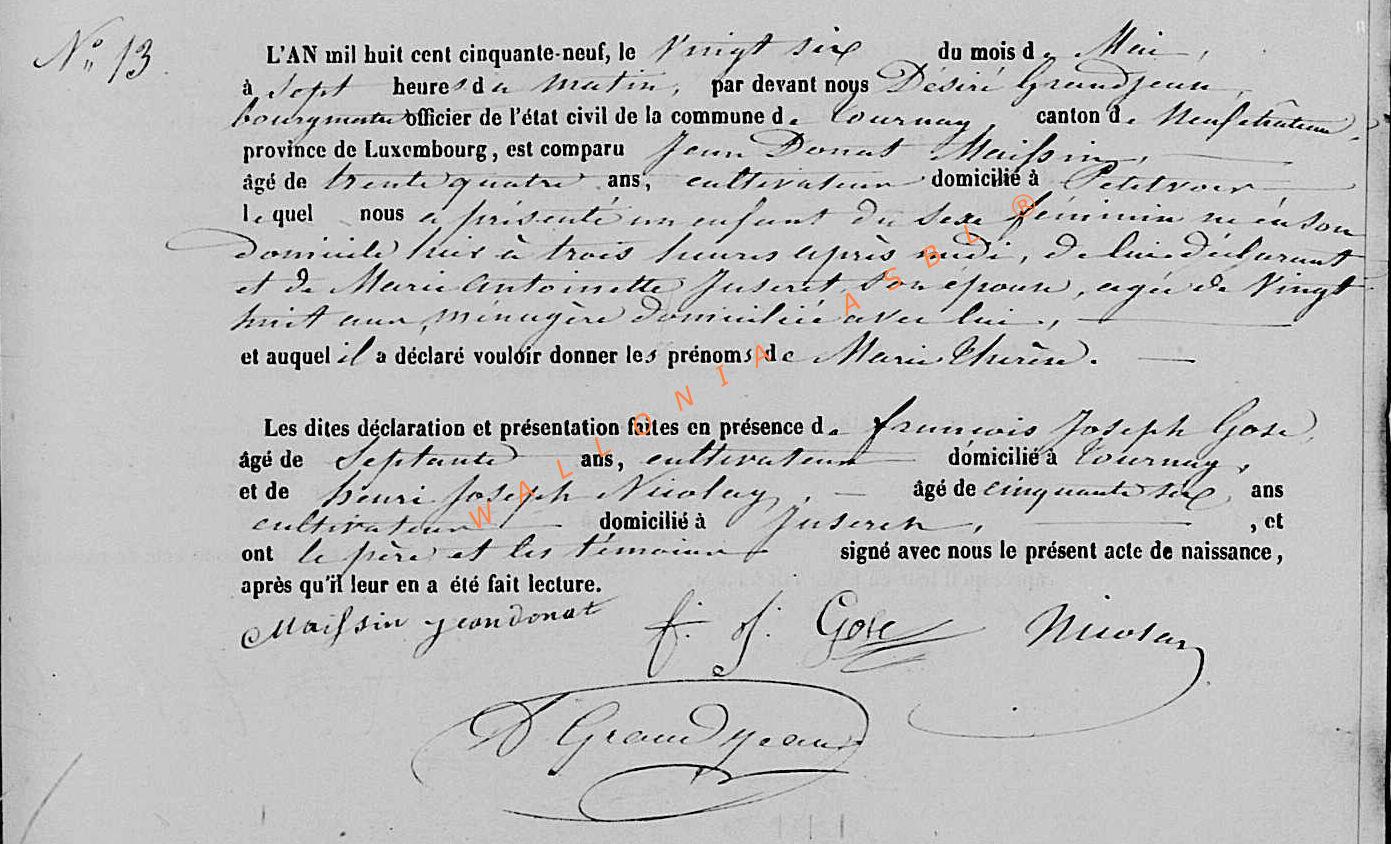 N° 13
L'AN mil huit cent cinquante-neuf, le Vingt six du mois de Mai,
à Sept heures du matin, par devant nous Désiré Grandjean,
bourgmestre officier de l'état civil de la commune de Tournay, canton de Neufchâteau,
province de Luxembourg, est comparu Jean Donat Maissin,
âgé de trente quatre ans, cultivateur domicilié à Petitvoir
lequel nous a présenté un enfant du sexe féminin né en son
domicile hier à trois heures après midi, de lui déclarant
et de Marie Antoinette Juseret, son épouse, agée de Vingt
huit ans, ménagère domiciliée avec lui,
et auquel il a déclaré vouloir donner les prénoms de Marie Thérèse.
Les dites déclaration et présentation faites en présence de françois Joseph Gose,
âgé de Septante ans, cultivateur domicilié à Tournay,
et de henri Joseph Nicolay, âgé de cinquante six ans
cultivateur domicilié à Juseret, , et
ont le père et les témoins signé avec nous le présent acte de naissance,
après qu'il leur en a été fait lecture.
Maissin jeandonat f. J. Gose Nicolay
D Grandjean
WALLONIA ASBL ®